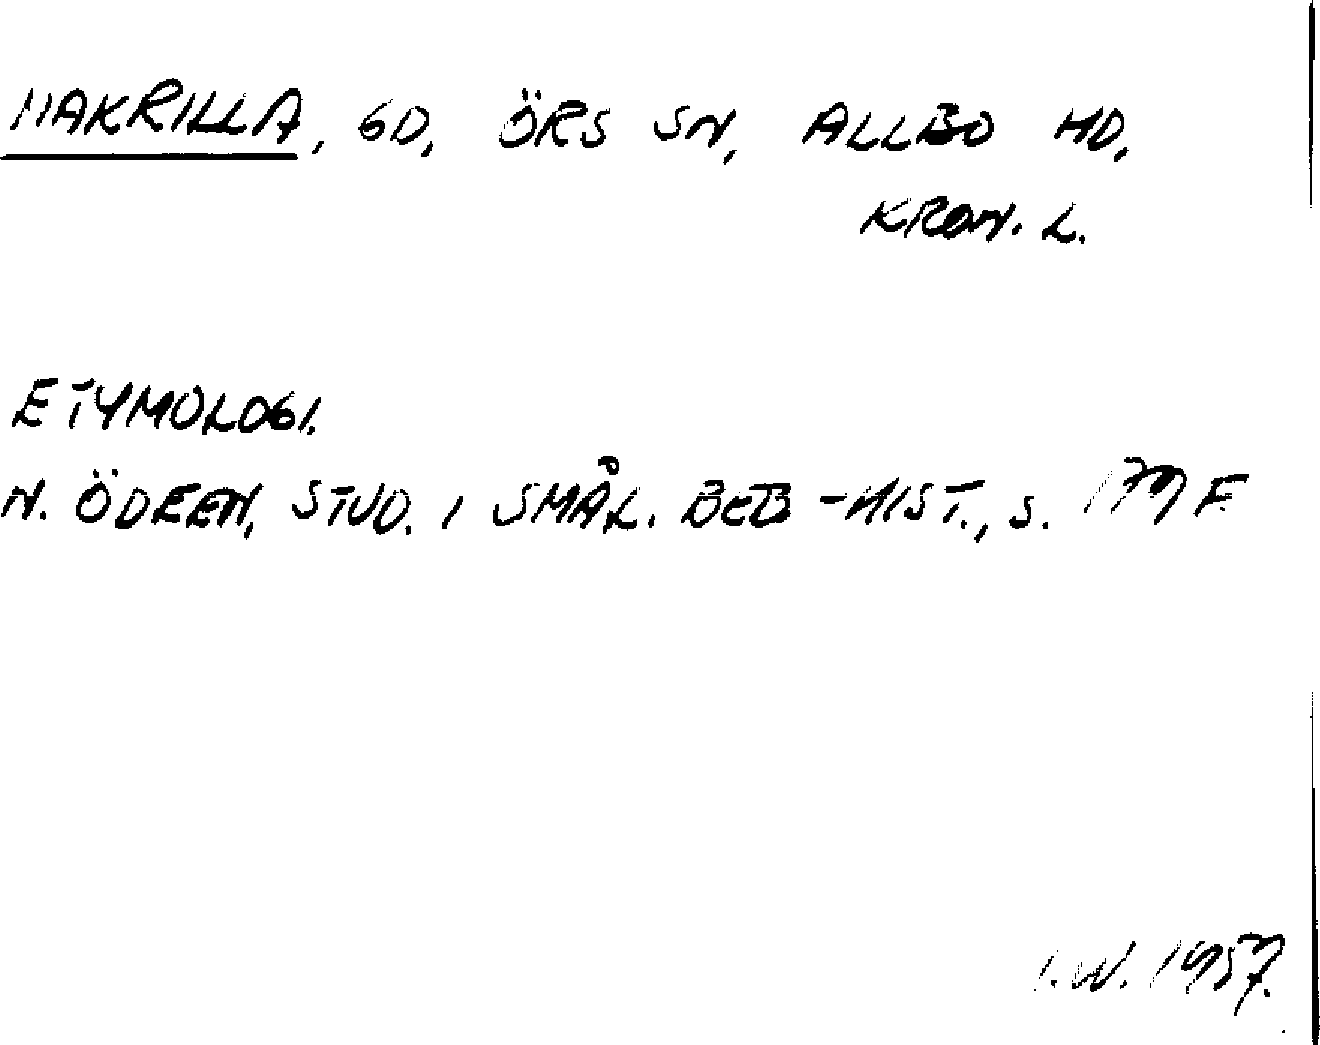 MAKRILLA, GD, ÖRS SN, ALLBO HD,
KRON. L.
ETYMOLOGI.
N. ÖDEEN, STUD. I SMÅL. BEB-HIST., S. 179 F.
I.W. 1957.